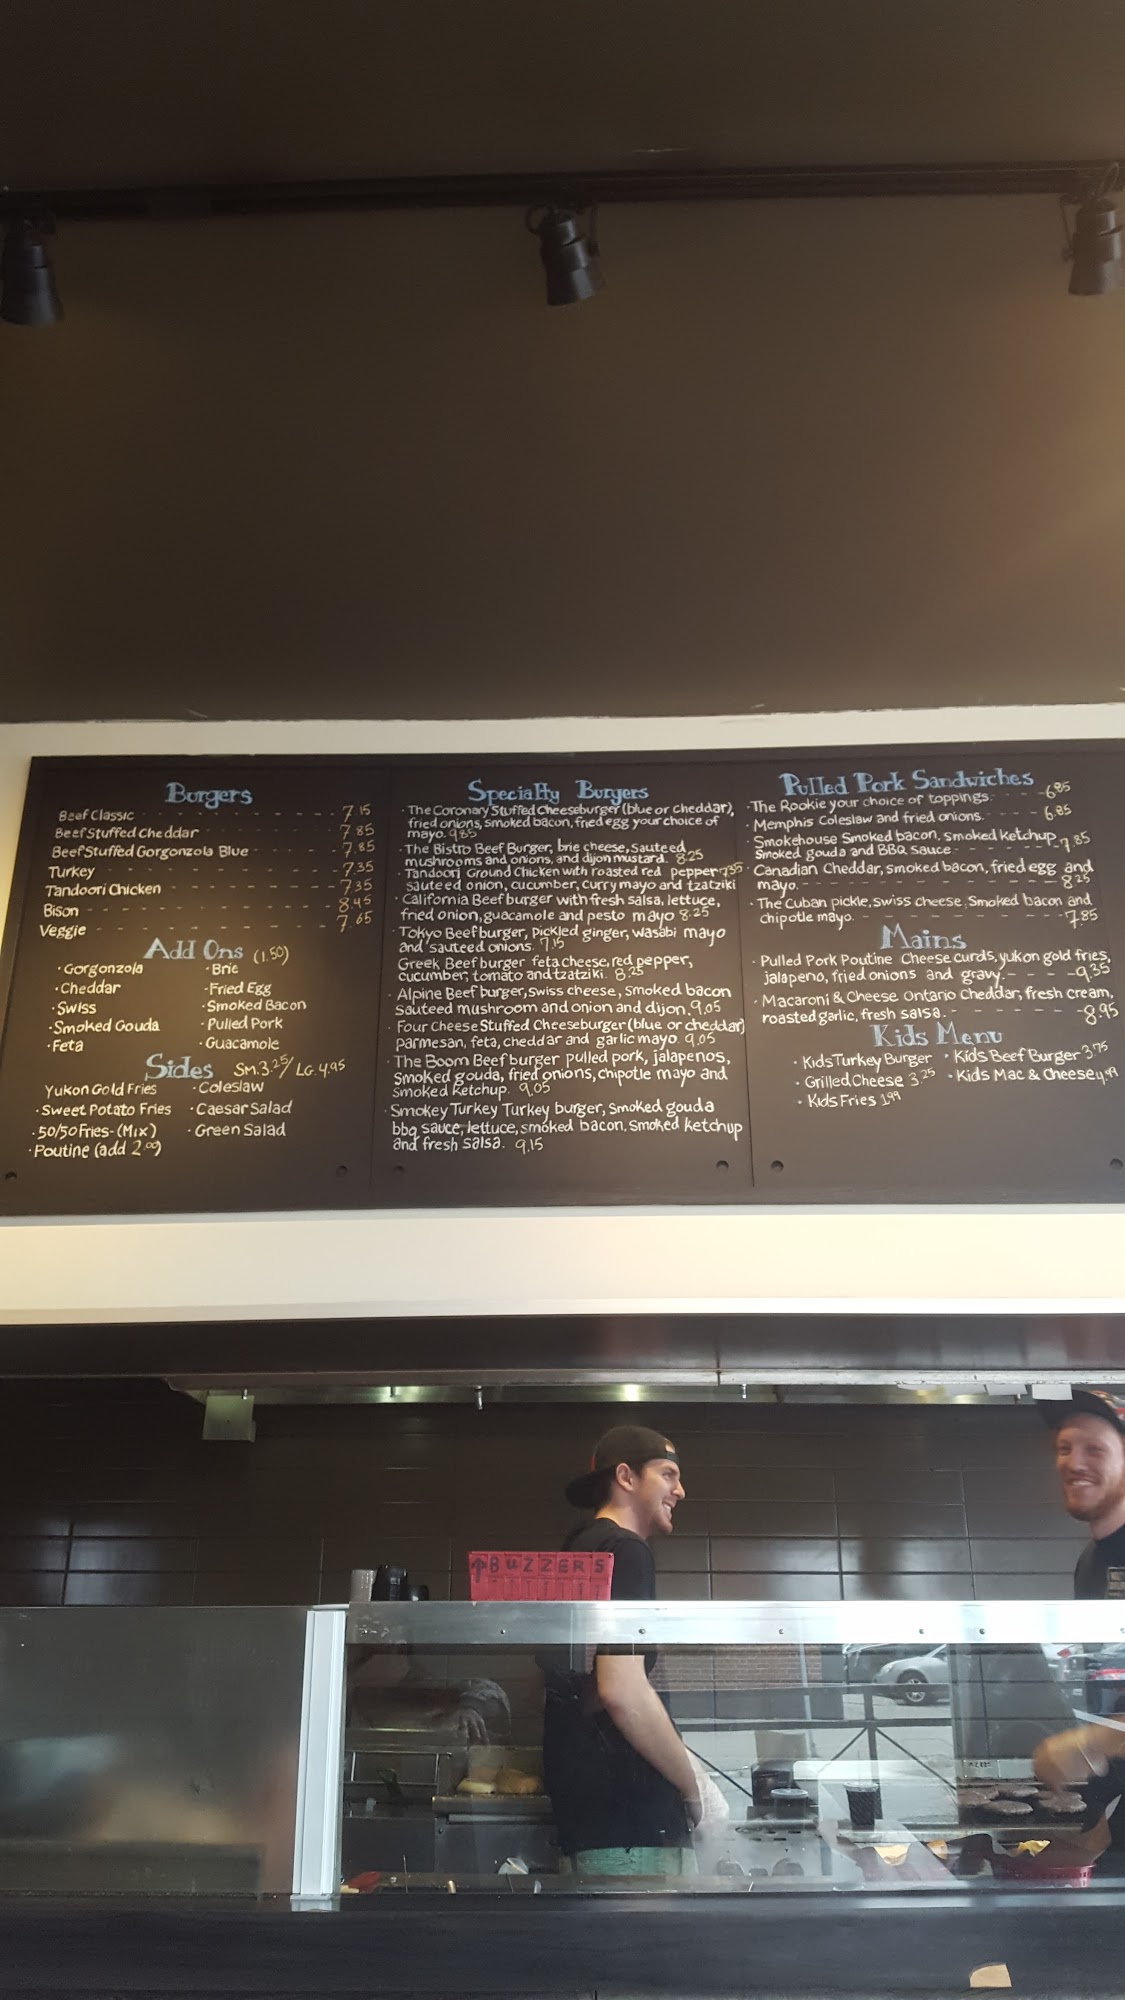 Burgers
Beef Classic - - - - - - - - - - 7.15
Beef Stuffed Cheddar - - - - - - - 7.85
Beef Stuffed Gorgonzola Blue - - - - - 7.85
Turkey - - - - - - - - - - - - 7.35
Tandoori Chicken - - - - - - - - 7.35
Bison - - - - - - - - - - - - 8.45
Veggie - - - - - - - - - - - - 7.65
Add Ons (1.50)
· Gorgonzola · Brie
· Cheddar · Fried Egg
· Swiss · Smoked Bacon
· Smoked Gouda · Pulled Pork
· Feta · Guacamole
Sides SM.3.25/ LG.4.95
Yukon Gold Fries · Coleslaw
· Sweet Potato Fries · Caesar Salad
· 50/50 Fries-(Mix) · Green Salad
· Poutine (add 2.00)
Specialty Burgers
· The Coronary Stuffed Cheeseburger (blue or cheddar),
fried onions, smoked bacon, fried egg your choice of
mayo. 9.85
· The Bistro Beef Burger, brie cheese, sauteed
mushrooms and onions, and dijon mustard. 8.25
· Tandoori Ground Chicken with roasted red pepper 7.95
sauteed onion, cucumber, curry mayo and tzatziki
· California Beef burger with fresh salsa, lettuce,
fried onion, guacamole and pesto mayo 8.25
· Tokyo Beef burger, pickled ginger, wasabi mayo
and sauteed onions. 7.15
Greek Beef burger feta cheese, red pepper,
cucumber, tomato and tzatziki. 8.25
· Alpine Beef burger, swiss cheese, smoked bacon
sauteed mushroom and onion and dijon. 9.05
· Four Cheese Stuffed Cheeseburger (blue or cheddar)
parmesan, feta, cheddar and garlic mayo. 9.05
· The Boom Beef burger pulled pork, jalapenos,
smoked gouda, fried onions, chipotle mayo and
smoked ketchup. 9.05
· Smokey Turkey Turkey burger, smoked gouda
bbq sauce, lettuce, smoked bacon. smoked ketchup
and fresh salsa. 9.15
Pulled Pork Sandwiches
· The Rookie your choice of toppings. - - - -6.85
· Memphis Coleslaw and fried onions. - - - - 6.85
· Smokehouse Smoked bacon, smoked ketchup
smoked gouda and BBQ sauce - - - - - - 7.85
· Canadian Cheddar, smoked bacon, fried egg and
mayo. - - - - - - - - - - - - 8.25
· The Cuban pickle, swiss cheese, smoked bacon and
chipotle mayo. - - - - - - - - - - -7.85
Mains
· Pulled Pork Poutine Cheese curds, yukon gold fries,
jalapeno, fried onions and gravy. - - - - -9.35
· Macaroni & Cheese Ontario Cheddar, fresh cream,
roasted garlic, fresh salsa. - - - - - - - -8.95
Kids Menu
· Kids Turkey Burger · Kids Beef Burger 3.75
· Grilled Cheese 3.25 · Kids Mac & Cheese 4.99
· Kids Fries 1.99
↑BUZZERS